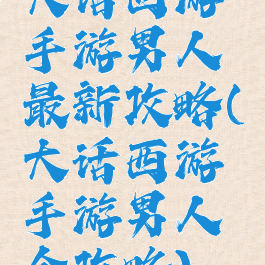 大话西游
手游男人
最新攻略(
大话西游
手游男人
全攻略)